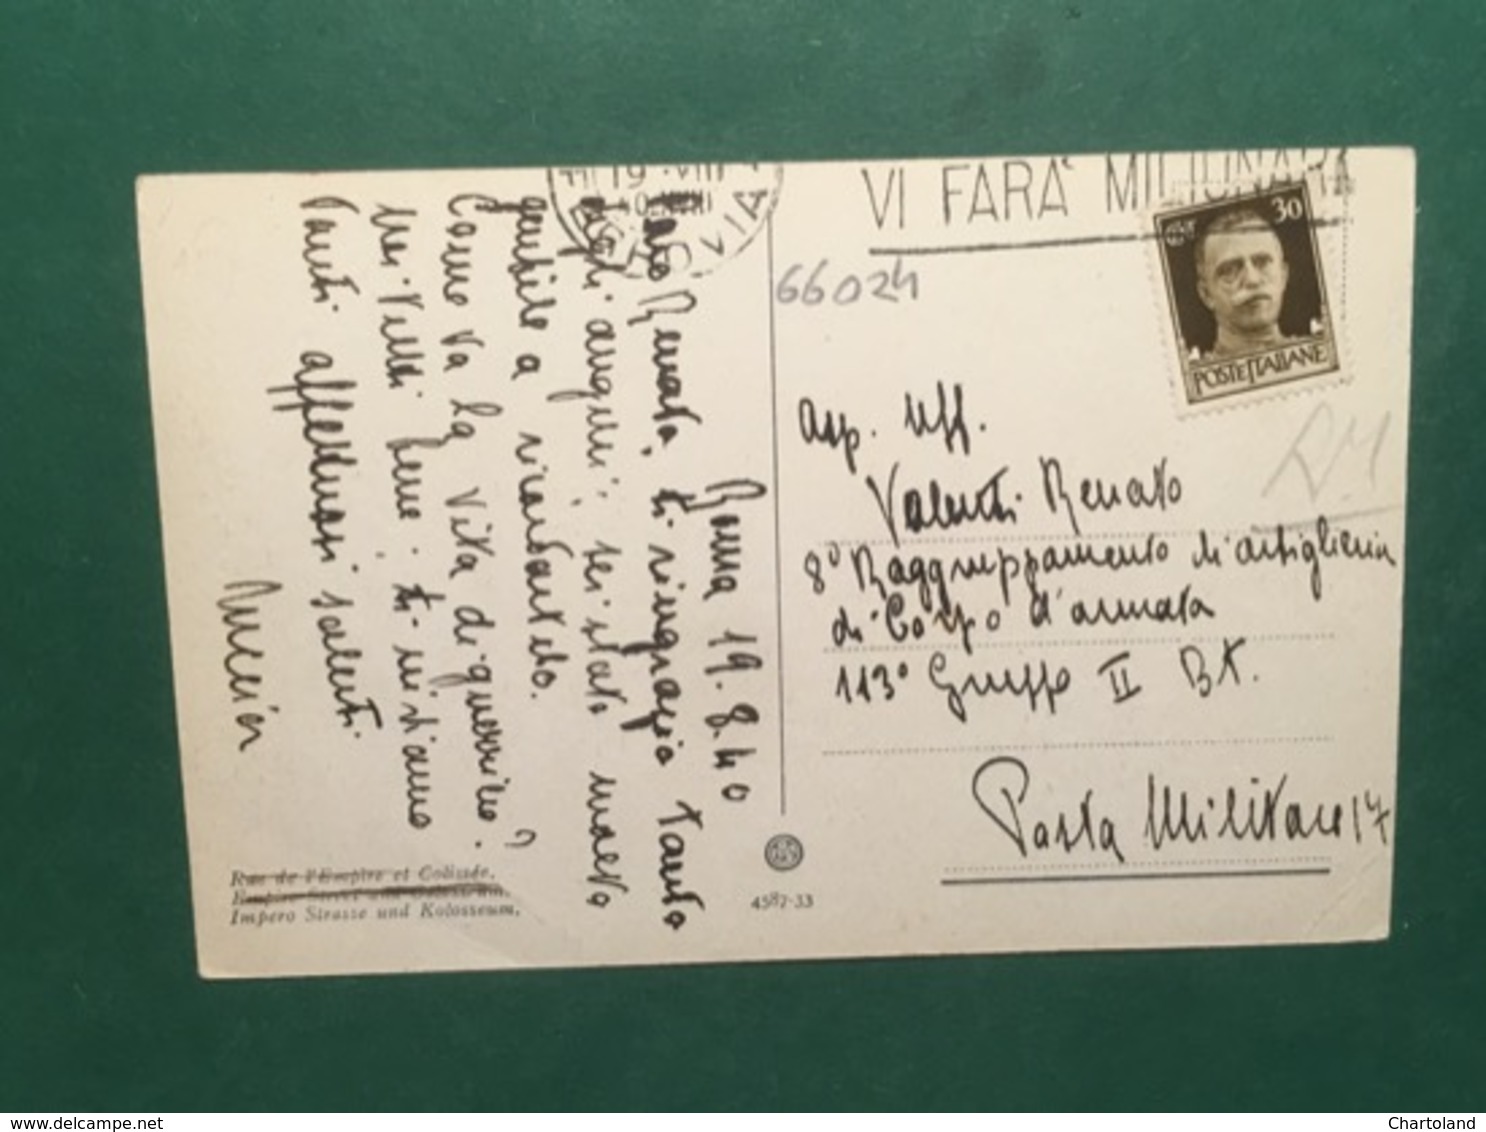 VI FARA' MILIONARI
11 19 · VIII
VIA
30
POSTE ITALIANE
66024
Asp. Uff.
Valenti Renato
8° Raggruppamento di artiglieria
di Corpo d'armata
113° Gruppo II Bt.
Posta Militare 17
Roma 19.8.40
Caro Renato, ti ringrazio tanto
degli auguri; sei stato molto
gentile a ricordartelo.
Come va la vita di guerriero?
Noi tutti bene;
Tanti affettuosi saluti
Rue de l'Empire et Colisée.
Empire Street and Colosseum.
Impero Strasse und Kolosseum.
4587-33
delcampe.net
Chartoland